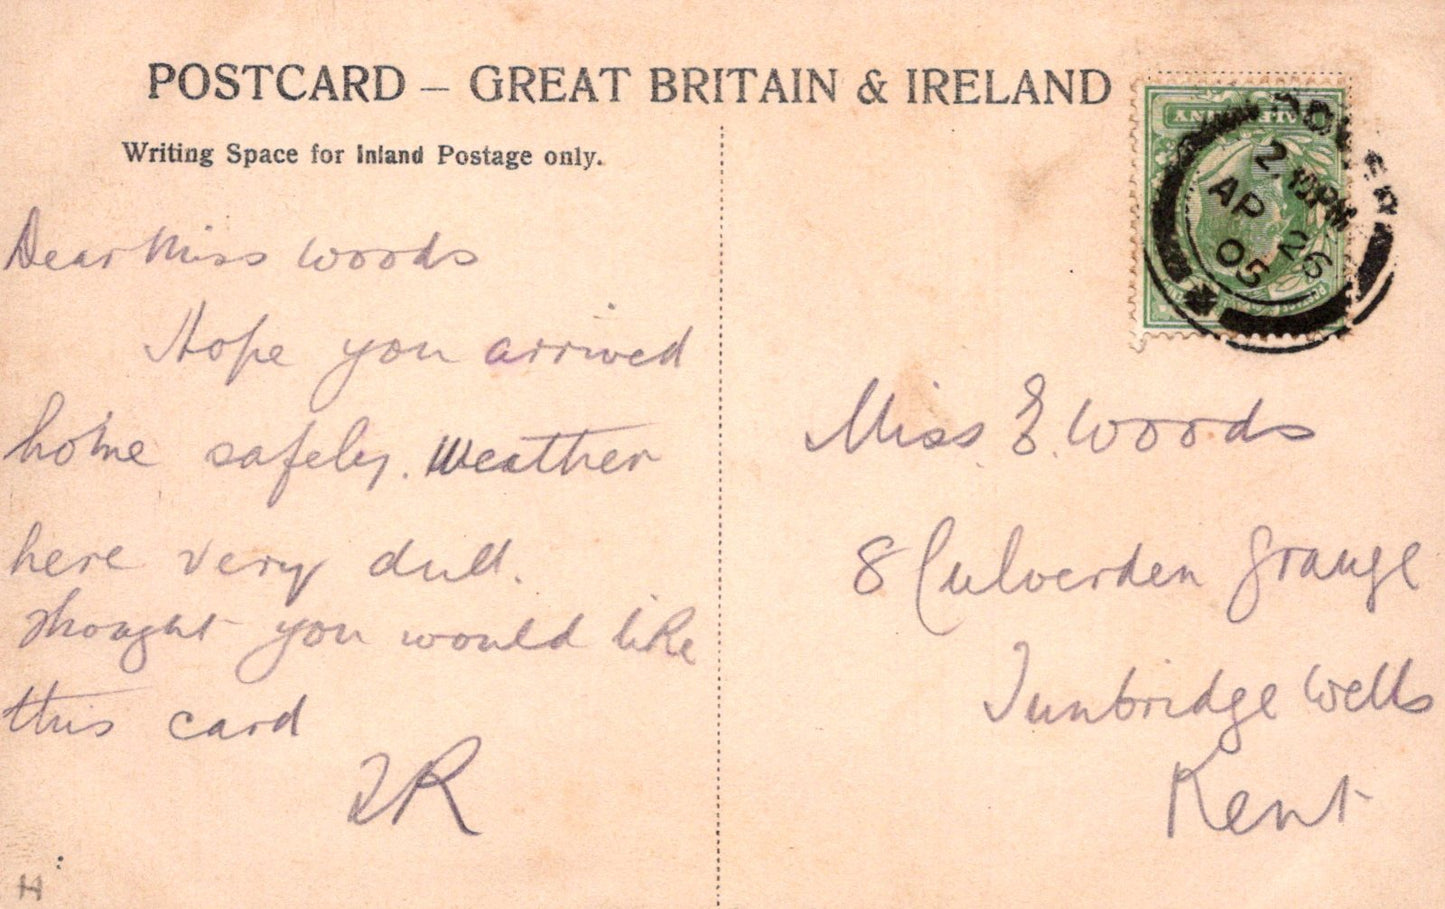 POSTCARD – GREAT BRITAIN & IRELAND
Writing Space for Inland Postage only.
Dear Miss Woods
Hope you arrived
home safely. Weather
here very dull.
Thought you would like
this card
H
DOVER
2.10PM
AP 26
05
Miss. E. Woods
8 Culverden Grange
Tunbridge Wells
Kent